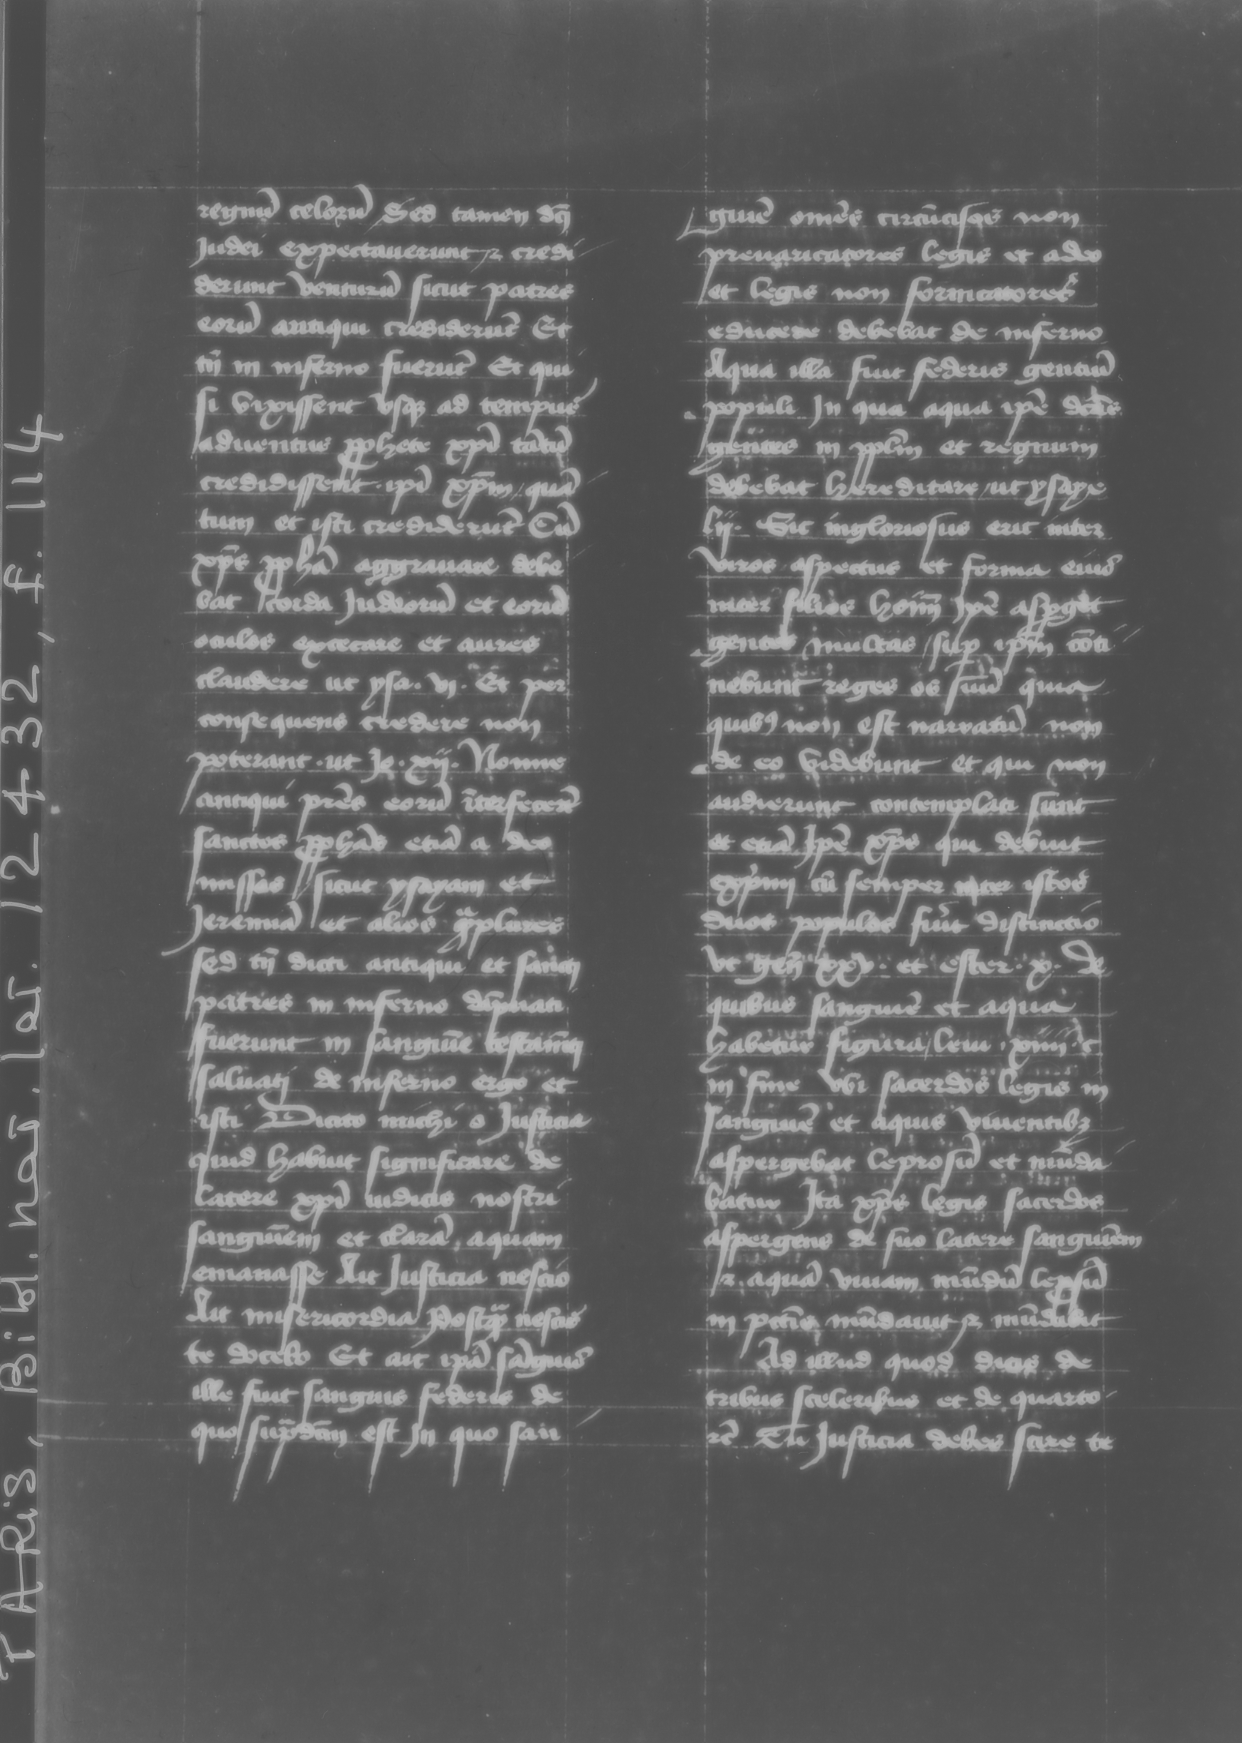 regnũ celorũ Sed tamen
Judei expectauerunt ⁊ credi
derunt venturũ sicut patres
eorũ antiqui crediderũt Et
tñ in inferno fuerũt Et qui
si vixissent usqꝫ ad tempus
aduentus ꝓphete xpĩ tãtũ
credidissent ipĩ xp̃m quã
tum et isti crediderũt Cũ
xp̃s ꝓphã aggrauare debe
bat corda Judeorũ et eorũ
oculos excecare et aures
claudere ut ysa. vi. Et per
consequens credere non
poterant ut Jo. xij. Nonne
antiqui pr̃es eorũ ĩterfecerũt
sanctos ꝓphãs etiã a deo
missos sicut ysayam et
Jeremiã et alios q̃plures
sed tñ dicti antiqui et sancti
patres in inferno dãpnati
fuerunt in sanguiñe testam̃ti
saluati de inferno ergo et
isti Dicito michi o Justicia
quid habuit significare de
latere xpĩ iudicis nostri
sanguiñem et clarã aquam
emanasse Ait Justicia nescio
Ait misericordia Postq̃ nescis
te docebo Et ait ipã sãguis
ille fuit sanguis federis de
quo sup̃dc̃m est Jn quo san
guiñe om̃es circũcisos non
preuaricatores legis et adeo
et legis non fornicatores
educere debebat de inferno
Aqua illa fuit federis gentiũ
populi Jn qua aqua ip̃e
gentes in ppl̃m et regnum
debebat hereditare ut ysaye
lij. Sic ingloriosus erit inter
viros aspectus et forma eius
inter filios hoĩm Jp̃e asp̲get
gentes multas sup̲ ip̃m cõti
nebunt reges os suũ quia
quibꝰ non est narratũ non
de eo viderunt et qui non
audierunt contemplati sunt
et etiã Jp̃e xp̃s qui debuit
exp̃mi cũ semper inter istos
duos populos fuit distinctio
ut geñ xxv. et ester. x. De
quibus sanguiñe et aqua
habetur figura leui. xiiii c̃
in fine vbi sacerdos legis in
sanguiñe et aquis viuentibꝫ
aspergebat leprosũ et mũda
batur Jta xp̃s legis sacerdos
aspergens de suo latere sanguiñem
⁊ aquã viuam mũdũ lep̲sũ
in pctĩs mũdauit ⁊ mũdabit
Ad illud quod dicis de
tribus sceleribus et de quarto
rc̃ Tu Justicia debes scire te
PARIS, Bibl. nat. lat. 12432, f. 114